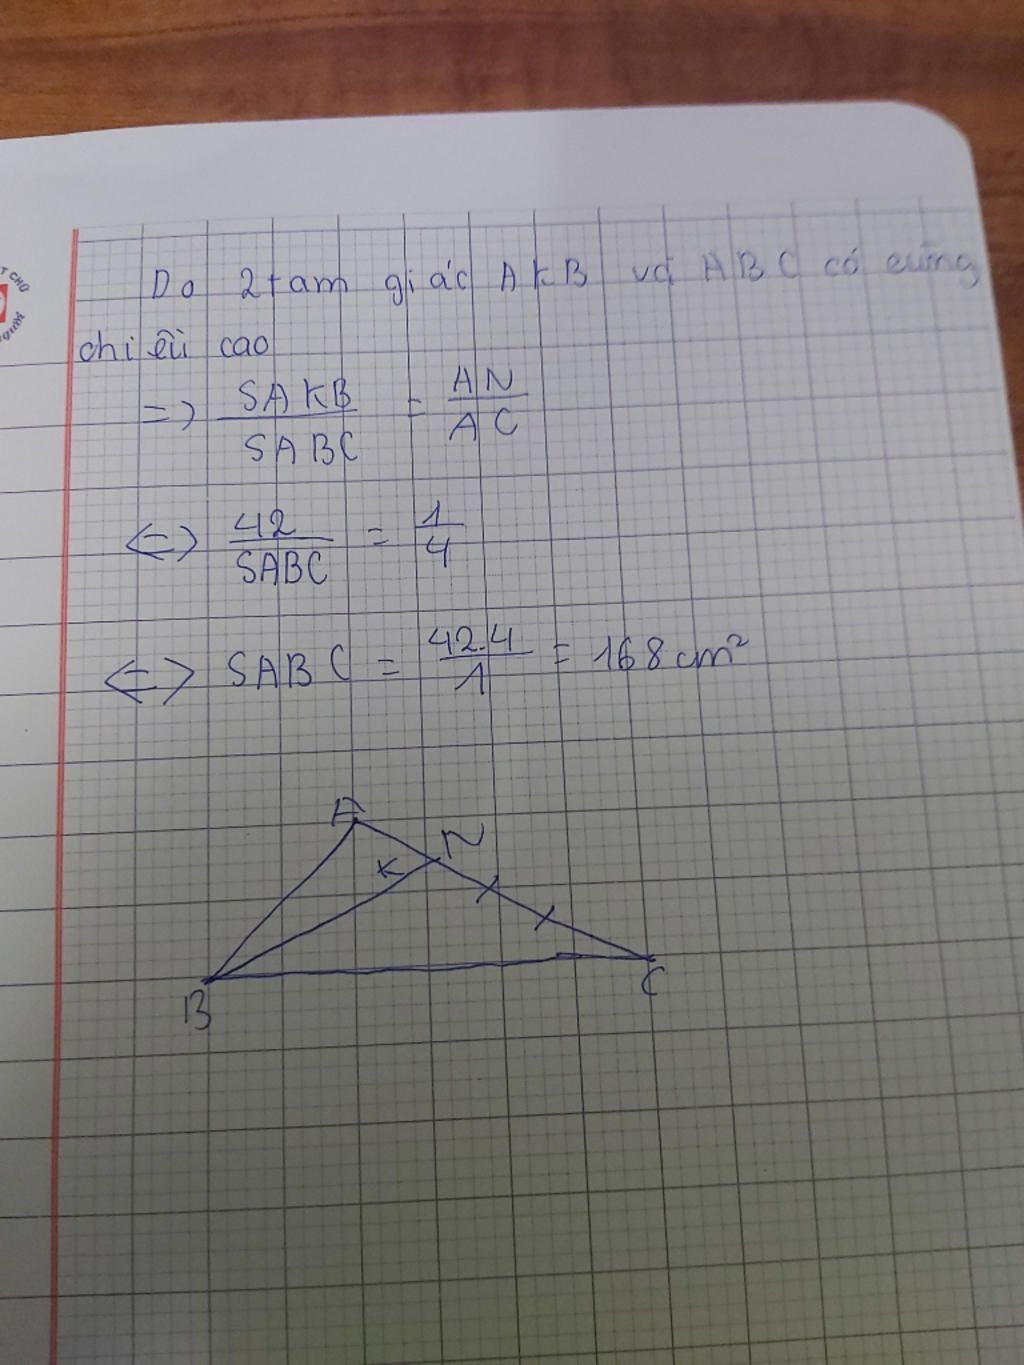 Do 2 tam giác AKB và ABC có cùng
chiều cao
=> SAKB / SABC = AN / AC
<=> 42 / SABC = 1 / 4
<=> SABC = 42.4 / 1 = 168 cm²
A
N
K
B
C